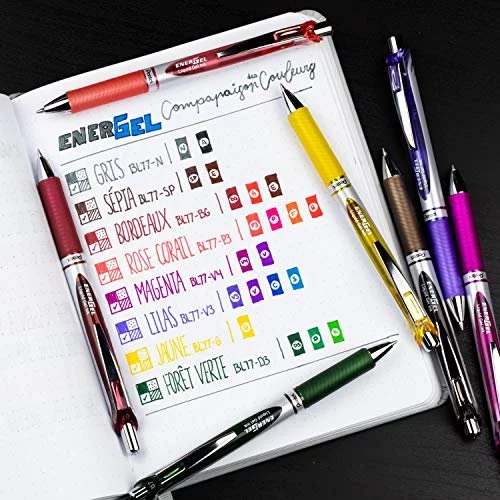 ENERGEL Comparaison des Couleurs
GRIS BL77-N
SÉPIA BL77-SP
BORDEAUX BL77-BG
ROSE CORAIL BL77-P3
MAGENTA BL77-V4
LILAS BL77-V3
JAUNE BL77-G
FORÊT VERTE BL77-D3
ENERGEL
Liquid Gel Ink
Pentel